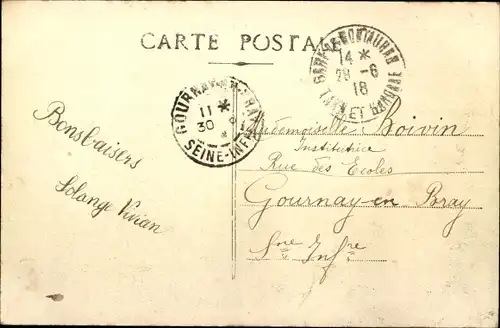 CARTE POSTALE
GARE DE MONTAUBAN
14 *
28 -6
18
TARN ET GARONNE
GOURNAY-EN-BRAY
11 *
30
SEINE-INFRE
Bons baisers
Solange Vivian
Mademoiselle Boivin
Institutrice
Rue des Ecoles
Gournay-en Bray
Sne Infre